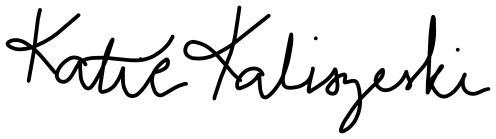 Katie Kaliszeski